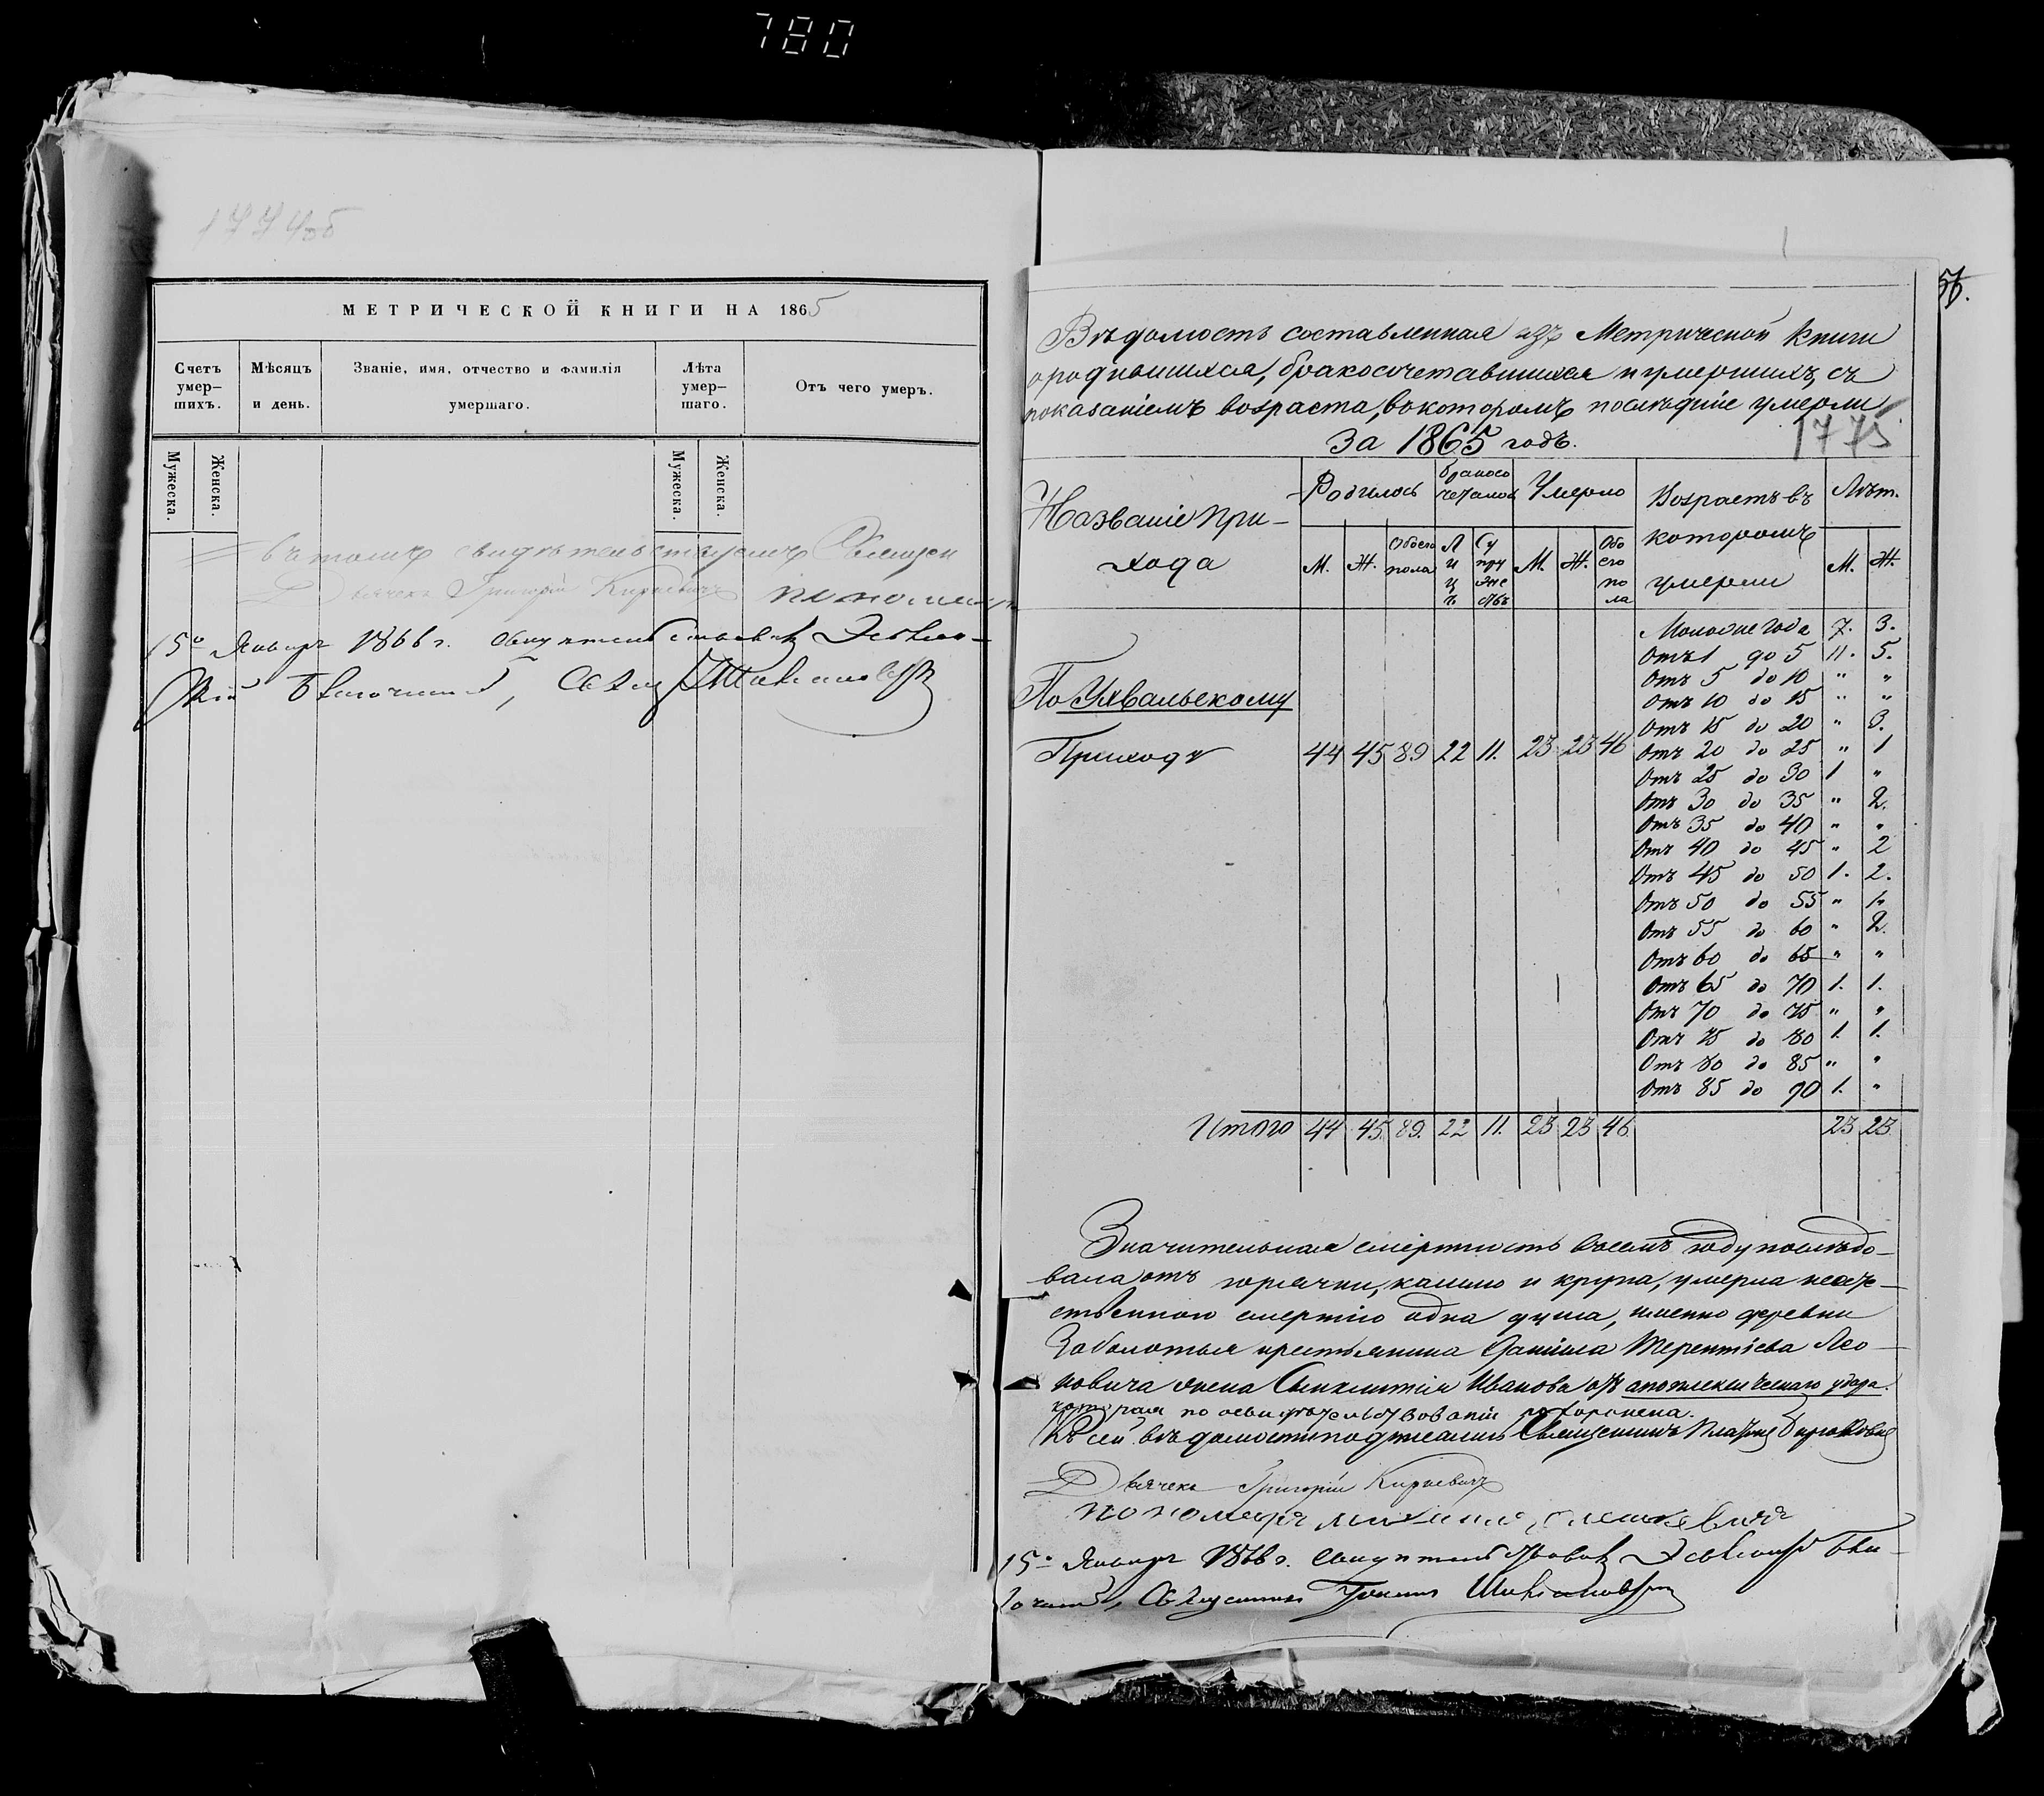 780
1774об
МЕТРИЧЕСКОЙ КНИГИ НА 1865
Счетъ умер-шихъ.
Мѣсяцъ и день.
Званіе, имя, отчество и фамилія умершаго.
Лѣта умер-шаго.
Отъ чего умеръ.
Мужеска. Женска. Мужеска. Женска.
въ томъ свидѣтельствуемъ Священ
Дьячекъ Григорій Киркевичъ пономарь
15º Январ 1866 г.
56.
Вѣдомость составленная изъ Метрической Книги
о родившихся, бракосочетавшихся и умершихъ, съ
показаніемъ возраста, въ которомъ послѣдніе умерли
за 1865 годъ.
1775
Названіе При-хода
Родилось М. Ж. Обоего пола
Бракосочеталось Лицъ Супружествъ
Умерло М. Ж. Обоего пола
Возрастъ въ которомъ умерли
Лѣт. М. Ж.
Моложе года 7. 3.
Отъ 1 до 5 11. 5.
Отъ 5 до 10 " "
Отъ 10 до 15 " "
По Ухвальскому
Отъ 15 до 20 " 3.
Приходу 44 45 89 22 11. 23 23 46 Отъ 20 до 25 " 1
Отъ 25 до 30 1 "
Отъ 30 до 35 " 2.
Отъ 35 до 40 " "
Отъ 40 до 45 " 2
Отъ 45 до 50 1. 2.
Отъ 50 до 55 " 1.
Отъ 55 до 60 " 2.
Отъ 60 до 65 " "
Отъ 65 до 70 1. 1.
Отъ 70 до 75 " "
Отъ 75 до 80 1. 1.
Отъ 80 до 85 " "
Отъ 85 до 90 1. "
Итого 44 45. 89. 22 11. 23 23 46 23 23.
Значительная смертность въ семъ году послѣдо-
вала отъ горячки, кашлю и крупа, умерла неесте-
ственною смертію одна душа, именно деревни
Заболотья крестьянина Даніила Терентіева Лео-
новича жена Синклитія Иванова отъ апоплексическаго удара.
которая по освидѣтельствованіи похоронена.
Къ сей вѣдомости подписались Священникъ
Дьячекъ Григорій Киркевичъ
пономарь
15º Январ 1866 г.
Священникъ